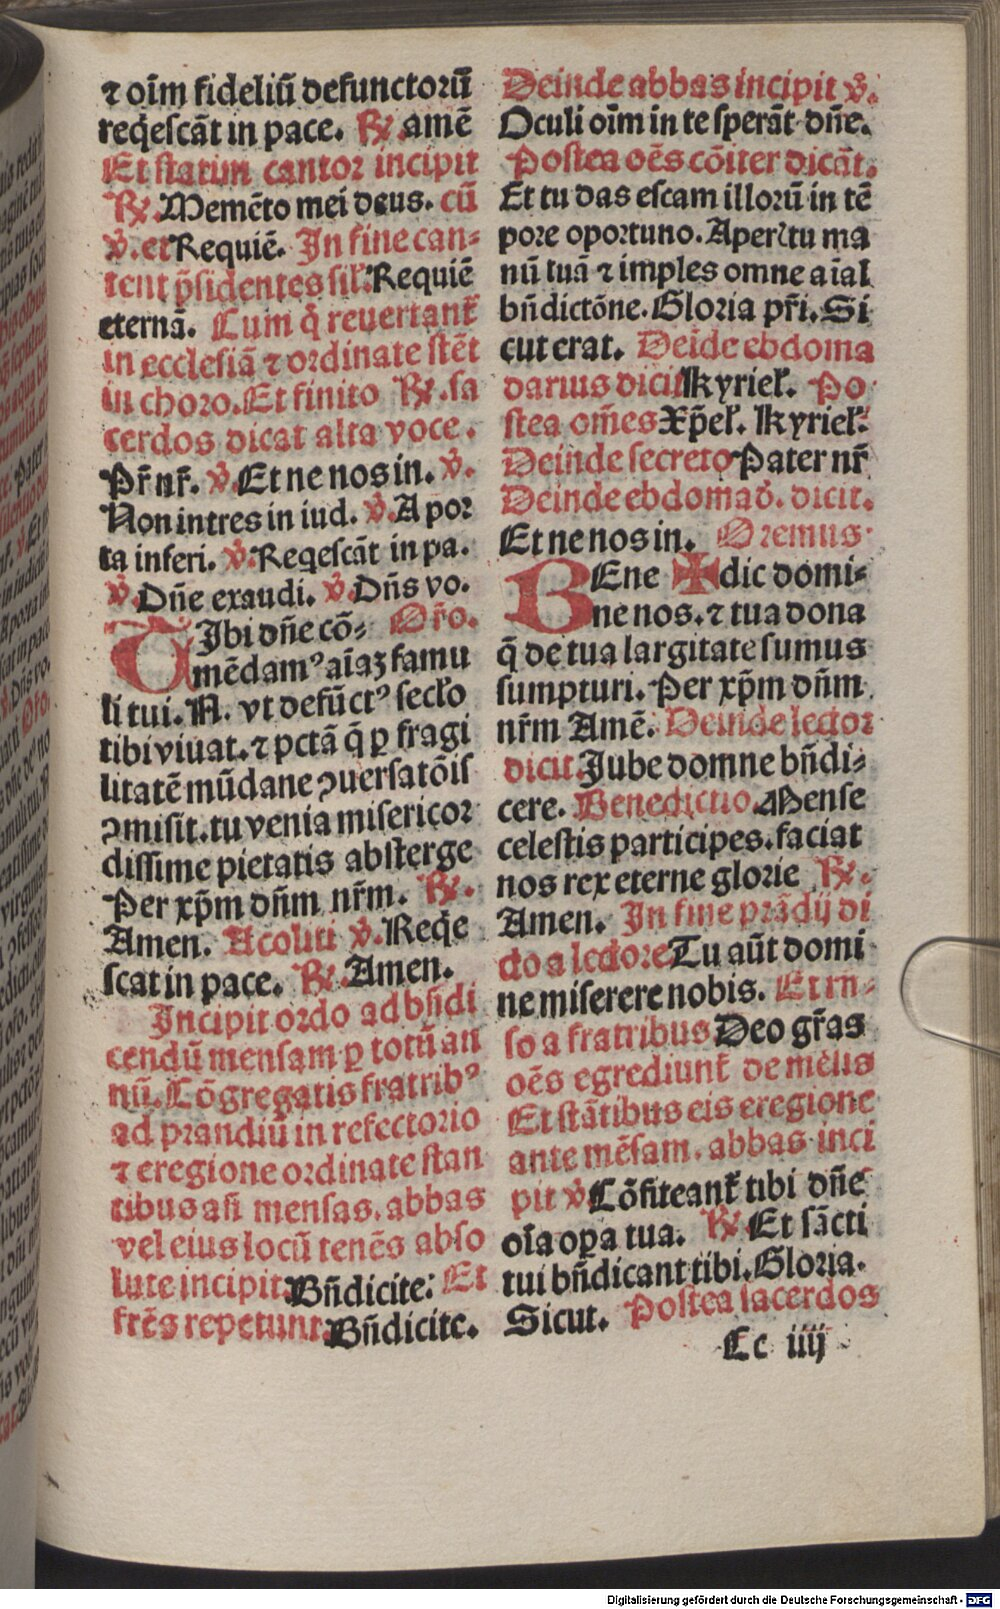 ⁊ oīm fideliū defunctorū
reqescāt in pace. ℟. amē
Et statim cantor incipit
℟. Memēto mei deus. cū
℣. et Requiē. In fine can-
tent p̄sidentes sił. Requiē
eternā. Cum q̄ reuertant᷑
in ecclesiā ⁊ ordinate stēt
in choro. Et finito ℟. sa
cerdos dicat alta voce.
Pr̄ nr̄. ℣. Et ne nos in. ℣.
Non intres in iud. ℣. A por
ta inferi. ℣. Reqescāt in pa.
℣. Dn̄e exaudi. ℣. Dn̄s vo.
TIbi dn̄e cō- Oro.
mēdamꝰ aīaꝫ famu
li tui. N. vt defūctꝰ seclo
tibi viuat. ⁊ pctā q̄ ꝑ fragi
litatē mūdane ꝯuersatōis
ꝯmisit. tu venia misericor
dissime pietatis absterge
Per xp̄m dn̄m nr̄m. ℟.
Amen. Acoliti ℣. Reqe
scat in pace. ℟. Amen.
Incipit ordo ad bn̄di
cendū mensam ꝑ totū an
nū. Cōgregatis fratribꝰ
ad prandiū in refectorio
⁊ eregione ordinate stan
tibus an̄ mensas. abbas
vel eius locū tenēs abso
lute incipit. Bn̄dicite: Et
fr̄es repetunt. Bn̄dicite.
Deinde abbas incipit ℣.
Oculi oīm in te sperāt dn̄e.
Postea oēs cōiter dicāt.
Et tu das escam illorū in tē
pore oportuno. Aperꝭ tu ma
nū tuā ⁊ imples omne aīal
bn̄dictōne. Gloria pr̄i. Si
cut erat. Deīde ebdoma
darius dicit Kyrieł. Po
stea om̄es Xp̄eł. Kyrieł.
Deinde secreto Pater nr̄
Deinde ebdomad̄. dicit.
Et ne nos in. Oremus.
BEne ✠ dic domi-
ne nos. ⁊ tua dona
q̄ de tua largitate sumus
sumpturi. Per xp̄m dn̄m
nr̄m Amē. Deinde lector
dicit. Jube domne bn̄di-
cere. Benedictio. Mense
celestis participes. faciat
nos rex eterne glorie ℟.
Amen. In fine prādij di
cto a lectore Tu aūt domi
ne miserere nobis. Et rn̄-
so a fratribus Deo gr̄as
oēs egrediunt᷑ de mēsis
Et stātibus eis eregione
ante mēsam. abbas inci
pit ℣. Cōfiteant᷑ tibi dn̄e
oīa oꝑa tua. ℟. Et sācti
tui bn̄dicant tibi. Gloria.
Sicut. Postea sacerdos
Cc iiij
Digitalisierung gefördert durch die Deutsche Forschungsgemeinschaft - DFG